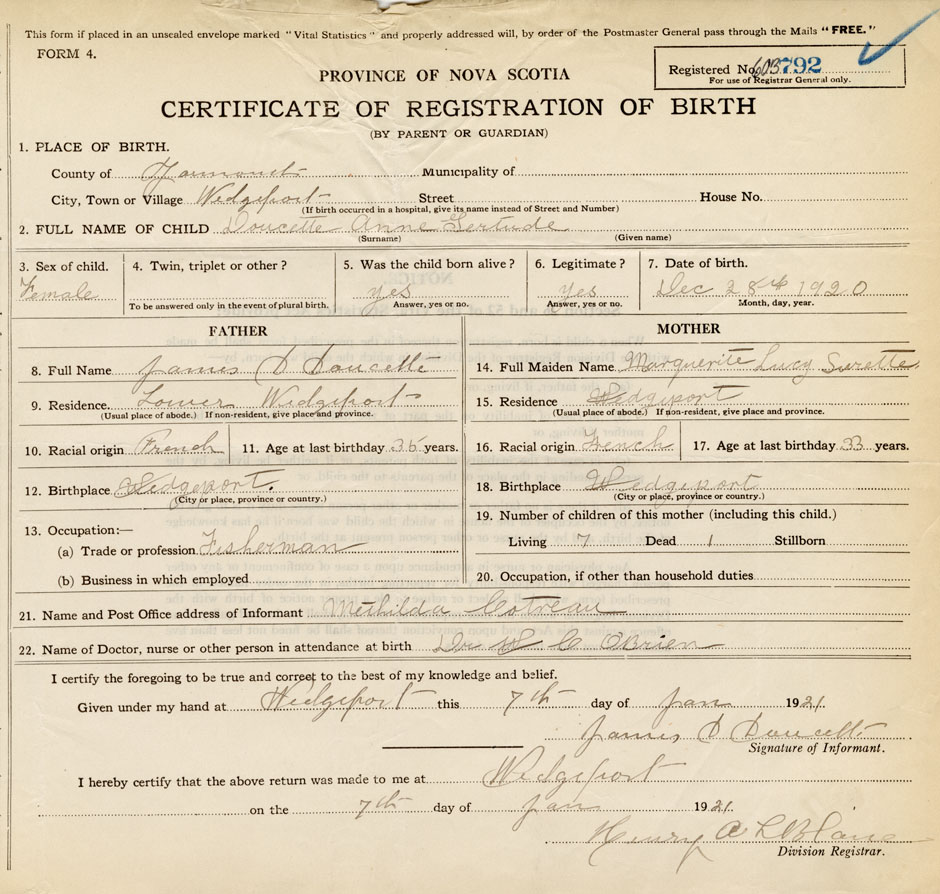 This form if placed in an unsealed envelope marked "Vital Statistics" and properly addressed will, by order of the Postmaster General pass through the Mails "FREE."
FORM 4.
Registered No. 603792
For use of Registrar General only.
PROVINCE OF NOVA SCOTIA
CERTIFICATE OF REGISTRATION OF BIRTH
(BY PARENT OR GUARDIAN)
1. PLACE OF BIRTH.
County of Yarmouth Municipality of
City, Town or Village Wedgeport Street House No.
(If birth occurred in a hospital, give its name instead of Street and Number)
2. FULL NAME OF CHILD Doucette Anne Gertude
(Surname) (Given name)
3. Sex of child. 4. Twin, triplet or other? 5. Was the child born alive? 6. Legitimate? 7. Date of birth.
Female yes yes Dec 28th 1920
To be answered only in the event of plural birth. Answer, yes or no. Answer, yes or no. Month, day, year.
FATHER MOTHER
8. Full Name James D Doucette 14. Full Maiden Name Marguerite Lucy Surette
9. Residence. Lower Wedgeport 15. Residence Wedgeport
(Usual place of abode.) If non-resident, give place and province. (Usual place of abode.) If non-resident, give place and province.
10. Racial origin French 11. Age at last birthday 36 years. 16. Racial origin French 17. Age at last birthday 33 years.
12. Birthplace Wedgeport. 18. Birthplace Wedgeport
(City or place, province or country.) (City or place, province or country.)
13. Occupation:— 19. Number of children of this mother (including this child.)
(a) Trade or profession Fisherman Living 7 Dead 1 Stillborn
(b) Business in which employed 20. Occupation, if other than household duties
21. Name and Post Office address of Informant Methilda Cotreau
22. Name of Doctor, nurse or other person in attendance at birth Dr C O'Brien
I certify the foregoing to be true and correct to the best of my knowledge and belief.
Given under my hand at Wedgeport this 7th day of Jan 1921.
James D Doucette
Signature of Informant.
I hereby certify that the above return was made to me at Wedgeport
on the 7th day of Jan 1921.
Henry A LeBlanc
Division Registrar.